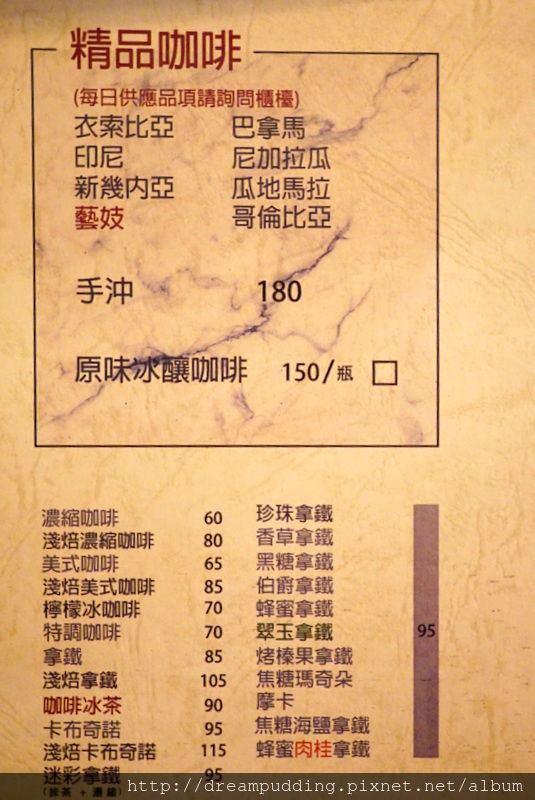 精品咖啡
(每日供應品項請詢問櫃檯)
衣索比亞 巴拿馬
印尼 尼加拉瓜
新幾內亞 瓜地馬拉
藝妓 哥倫比亞
手沖 180
原味冰釀咖啡 150/瓶 □
濃縮咖啡 60
淺焙濃縮咖啡 80
美式咖啡 65
淺焙美式咖啡 85
檸檬冰咖啡 70
特調咖啡 70
拿鐵 85
淺焙拿鐵 105
咖啡冰茶 90
卡布奇諾 95
淺焙卡布奇諾 115
迷彩拿鐵 95
(抹茶 + 濃縮)
珍珠拿鐵
香草拿鐵
黑糖拿鐵
伯爵拿鐵
蜂蜜拿鐵
翠玉拿鐵 95
烤榛果拿鐵
焦糖瑪奇朵
摩卡
焦糖海鹽拿鐵
蜂蜜肉桂拿鐵
http://dreampudding.pixnet.net/album